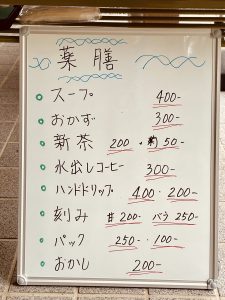 薬膳
スープ 400-
おかず 300-
新茶 200・ 50-
水出しコーヒー 300-
ハンドドリップ 400・200-
刻み 200- バラ 250-
パック 250-・100-
おかし 200-